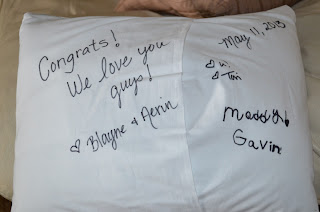 Congrats!
We love you
guys!
♡ Blayne & Aerin
May 11, 2013
♡
♡ Tim
Maddy
Gavin